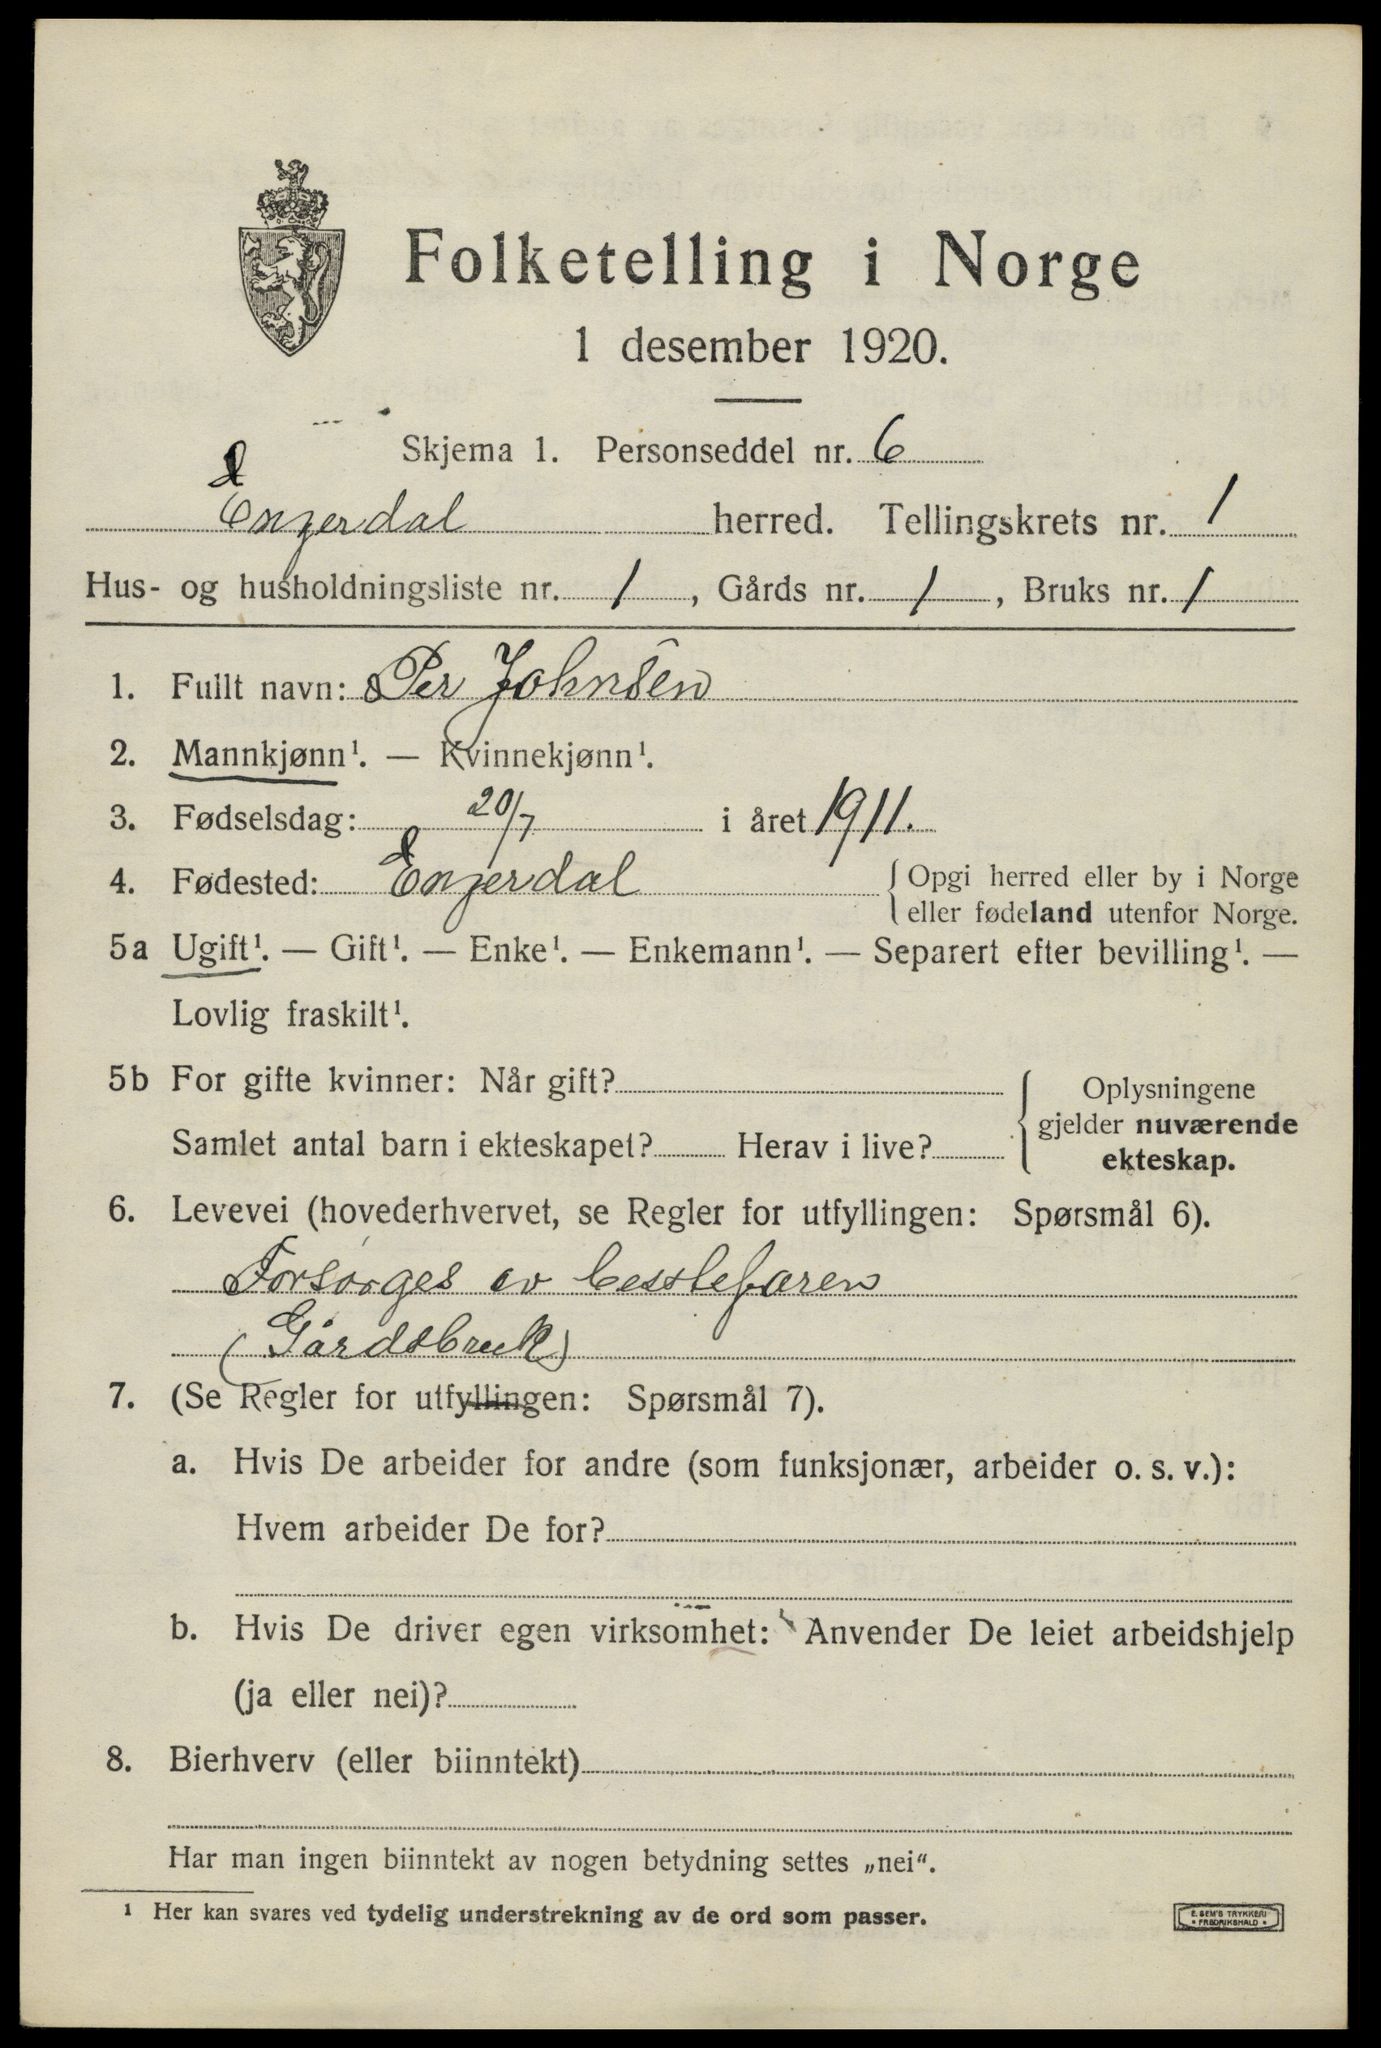 Folketelling i Norge
1 desember 1920.
Skjema 1. Personseddel nr. 6
Engerdal herred. Tellingskrets nr. 1
Hus- og husholdningsliste nr. 1, Gårds nr. 1, Bruks nr. 1
1. Fullt navn: Per Johnsen
2. Mannkjønn¹. — Kvinnekjønn¹.
3. Fødselsdag: 20/7 i året 1911.
4. Fødested: Engerdal { Opgi herred eller by i Norge
eller fødeland utenfor Norge.
5a Ugift¹. — Gift¹. — Enke¹. — Enkemann¹. — Separert efter bevilling¹. —
Lovlig fraskilt¹.
5b For gifte kvinner: Når gift?
Samlet antal barn i ekteskapet? Herav i live?
{ Oplysningene
gjelder nuværende
ekteskap.
6. Levevei (hovederhvervet, se Regler for utfyllingen: Spørsmål 6).
Forsørges av bestefaren
(Gårdsbruk)
7. (Se Regler for utfyllingen: Spørsmål 7).
a. Hvis De arbeider for andre (som funksjonær, arbeider o. s. v.):
Hvem arbeider De for?
b. Hvis De driver egen virksomhet: Anvender De leiet arbeidshjelp
(ja eller nei)?
8. Bierhverv (eller biinntekt)
Har man ingen biinntekt av nogen betydning settes „nei“.
¹ Her kan svares ved tydelig understrekning av de ord som passer.
E. SEM'S TRYKKERI
• FREDRIKSHALD •